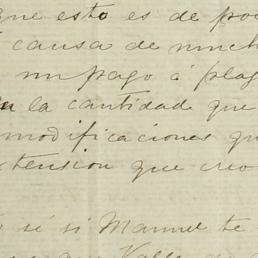 que esto es de poc
causa de much
un pago á plaz
la cantidad que
modificaciones qu
xtension que creo
sé si Manuel te
Valle